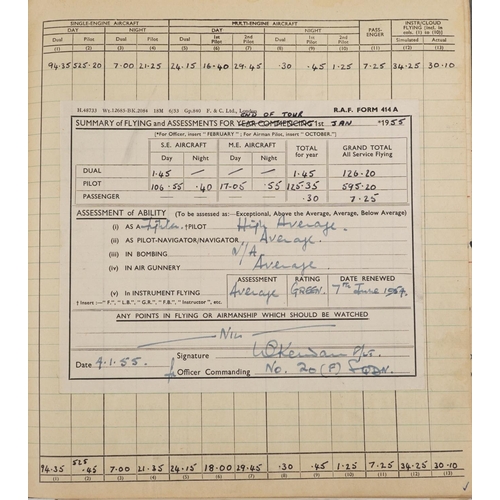 SINGLE-ENGINE AIRCRAFT MULTI-ENGINE AIRCRAFT PASS-ENGER INSTR/CLOUD FLYING [Incl. in cols. (1) to (10)]
DAY NIGHT DAY NIGHT
Dual Pilot Dual Pilot Dual 1st Pilot 2nd Pilot Dual 1st Pilot 2nd Pilot Simulated Actual
(1) (2) (3) (4) (5) (6) (7) (8) (9) (10) (11) (12) (13)
94.35 525.20 7.00 21.25 24.15 16.40 29.45 .30 .45 1.25 7.25 34.25 30.10
H.48733 Wt.12685-BK.2084 18M 6/53 Gp.840 F. & C. Ltd., London R.A.F. FORM 414 A
END OF TOUR
SUMMARY of FLYING and ASSESSMENTS FOR YEAR COMMENCING 1st JAN *1955
[*For Officer, insert "FEBRUARY"; For Airman Pilot, insert "OCTOBER."]
S.E. AIRCRAFT M.E. AIRCRAFT TOTAL for year GRAND TOTAL All Service Flying
Day Night Day Night
DUAL 1.45 — 1.45 126.20
PILOT 106.55 .40 17.05 .55 125.35 595.20
PASSENGER .30 7.25
ASSESSMENT of ABILITY (To be assessed as:—Exceptional, Above the Average, Average, Below Average)
(i) AS A †PILOT High Average.
(ii) AS PILOT-NAVIGATOR/NAVIGATOR Average.
(iii) IN BOMBING N/A
(iv) IN AIR GUNNERY Average.
ASSESSMENT RATING DATE RENEWED
(v) IN INSTRUMENT FLYING Average GREEN. 7th June 1954.
† Insert :—"F.", "L.B.", "G.R.", "F.B.", "Instructor", etc.
ANY POINTS IN FLYING OR AIRMANSHIP WHICH SHOULD BE WATCHED
NIL
Signature
Date 4.1.55.
for Officer Commanding No. 20 (F) SQDN.
94.35 525.45 7.00 21.35 24.15 18.00 29.45 .30 .45 1.25 7.25 34.25 30.10
(1) (2) (3) (4) (5) (6) (7) (8) (9) (10) (11) (12) (13)